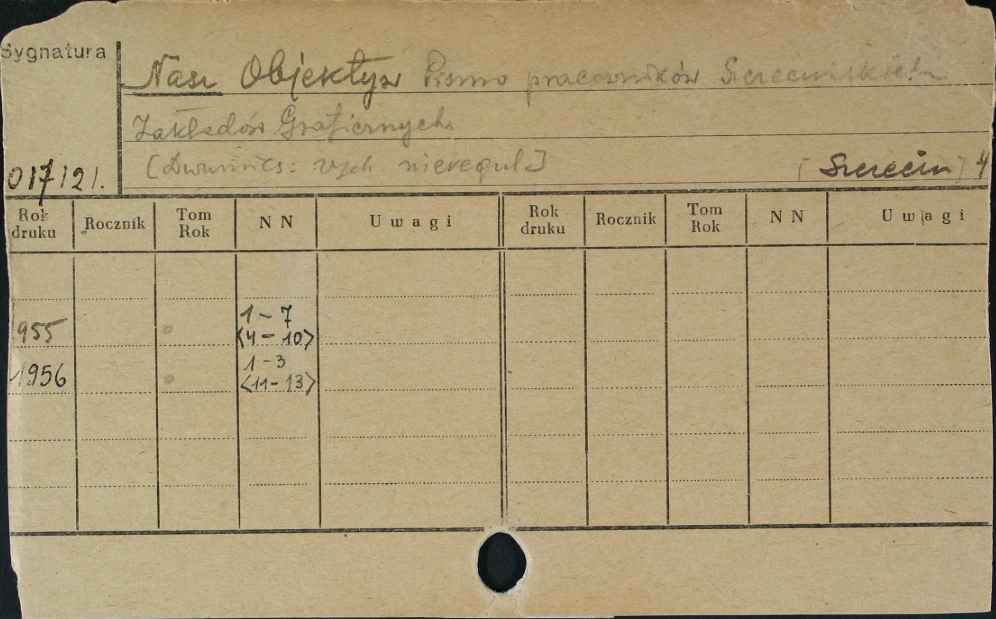 Sygnatura
Nasz Objektyw Pismo pracowników Szczecińskich
Zakładów Graficznych.
[Dwumies: wych nieregul]
[Szczecin] 4
017121.
Rok druku Rocznik Tom Rok NN Uwagi Rok druku Rocznik Tom Rok NN Uwagi
1-7
955 <4-10>
1-3
1956 <11-13>